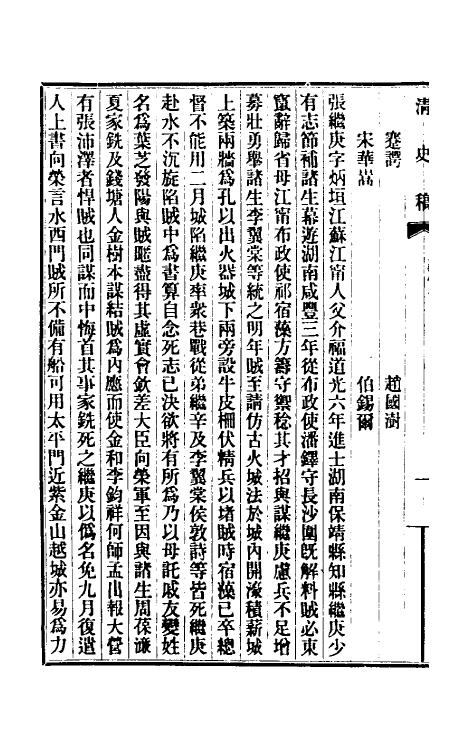 清史稿
蹇諤
趙國澍
宋華嵩
伯錫爾
張繼庚字炳垣江蘇江甯人父介福道光六年進士湖南保靖縣知縣繼庚少
有志節補諸生幕遊湖南咸豐三年從布政使潘鐸守長沙圍旣解料賊必東
竄辭歸省母江甯布政使祁宿藻方籌守禦稔其才招與謀繼庚慮兵不足增
募壯勇舉諸生李翼棠等統之明年賊至請仿古火城法於城內開濠積薪城
上築兩牆爲孔以出火器城下兩旁設牛皮柵伏精兵以堵賊時宿藻已卒總
督不能用二月城陷繼庚率衆巷戰從弟繼辛及李翼棠侯敦詩等皆死繼庚
赴水不沉旋陷賊中爲書算自念死志已決欲將有所爲乃以母託戚友變姓
名爲葉芝發陽與賊暱盡得其虛實會欽差大臣向榮軍至因與諸生周葆濂
夏家銑及錢塘人金樹本謀結賊爲內應而使金和李鈞祥何師孟出報大營
有張沛澤者悍賊也同謀而中悔首其事家銑死之繼庚以僞名免九月復遣
人上書向榮言水西門賊所不備有船可用太平門近紫金山越城亦易爲力